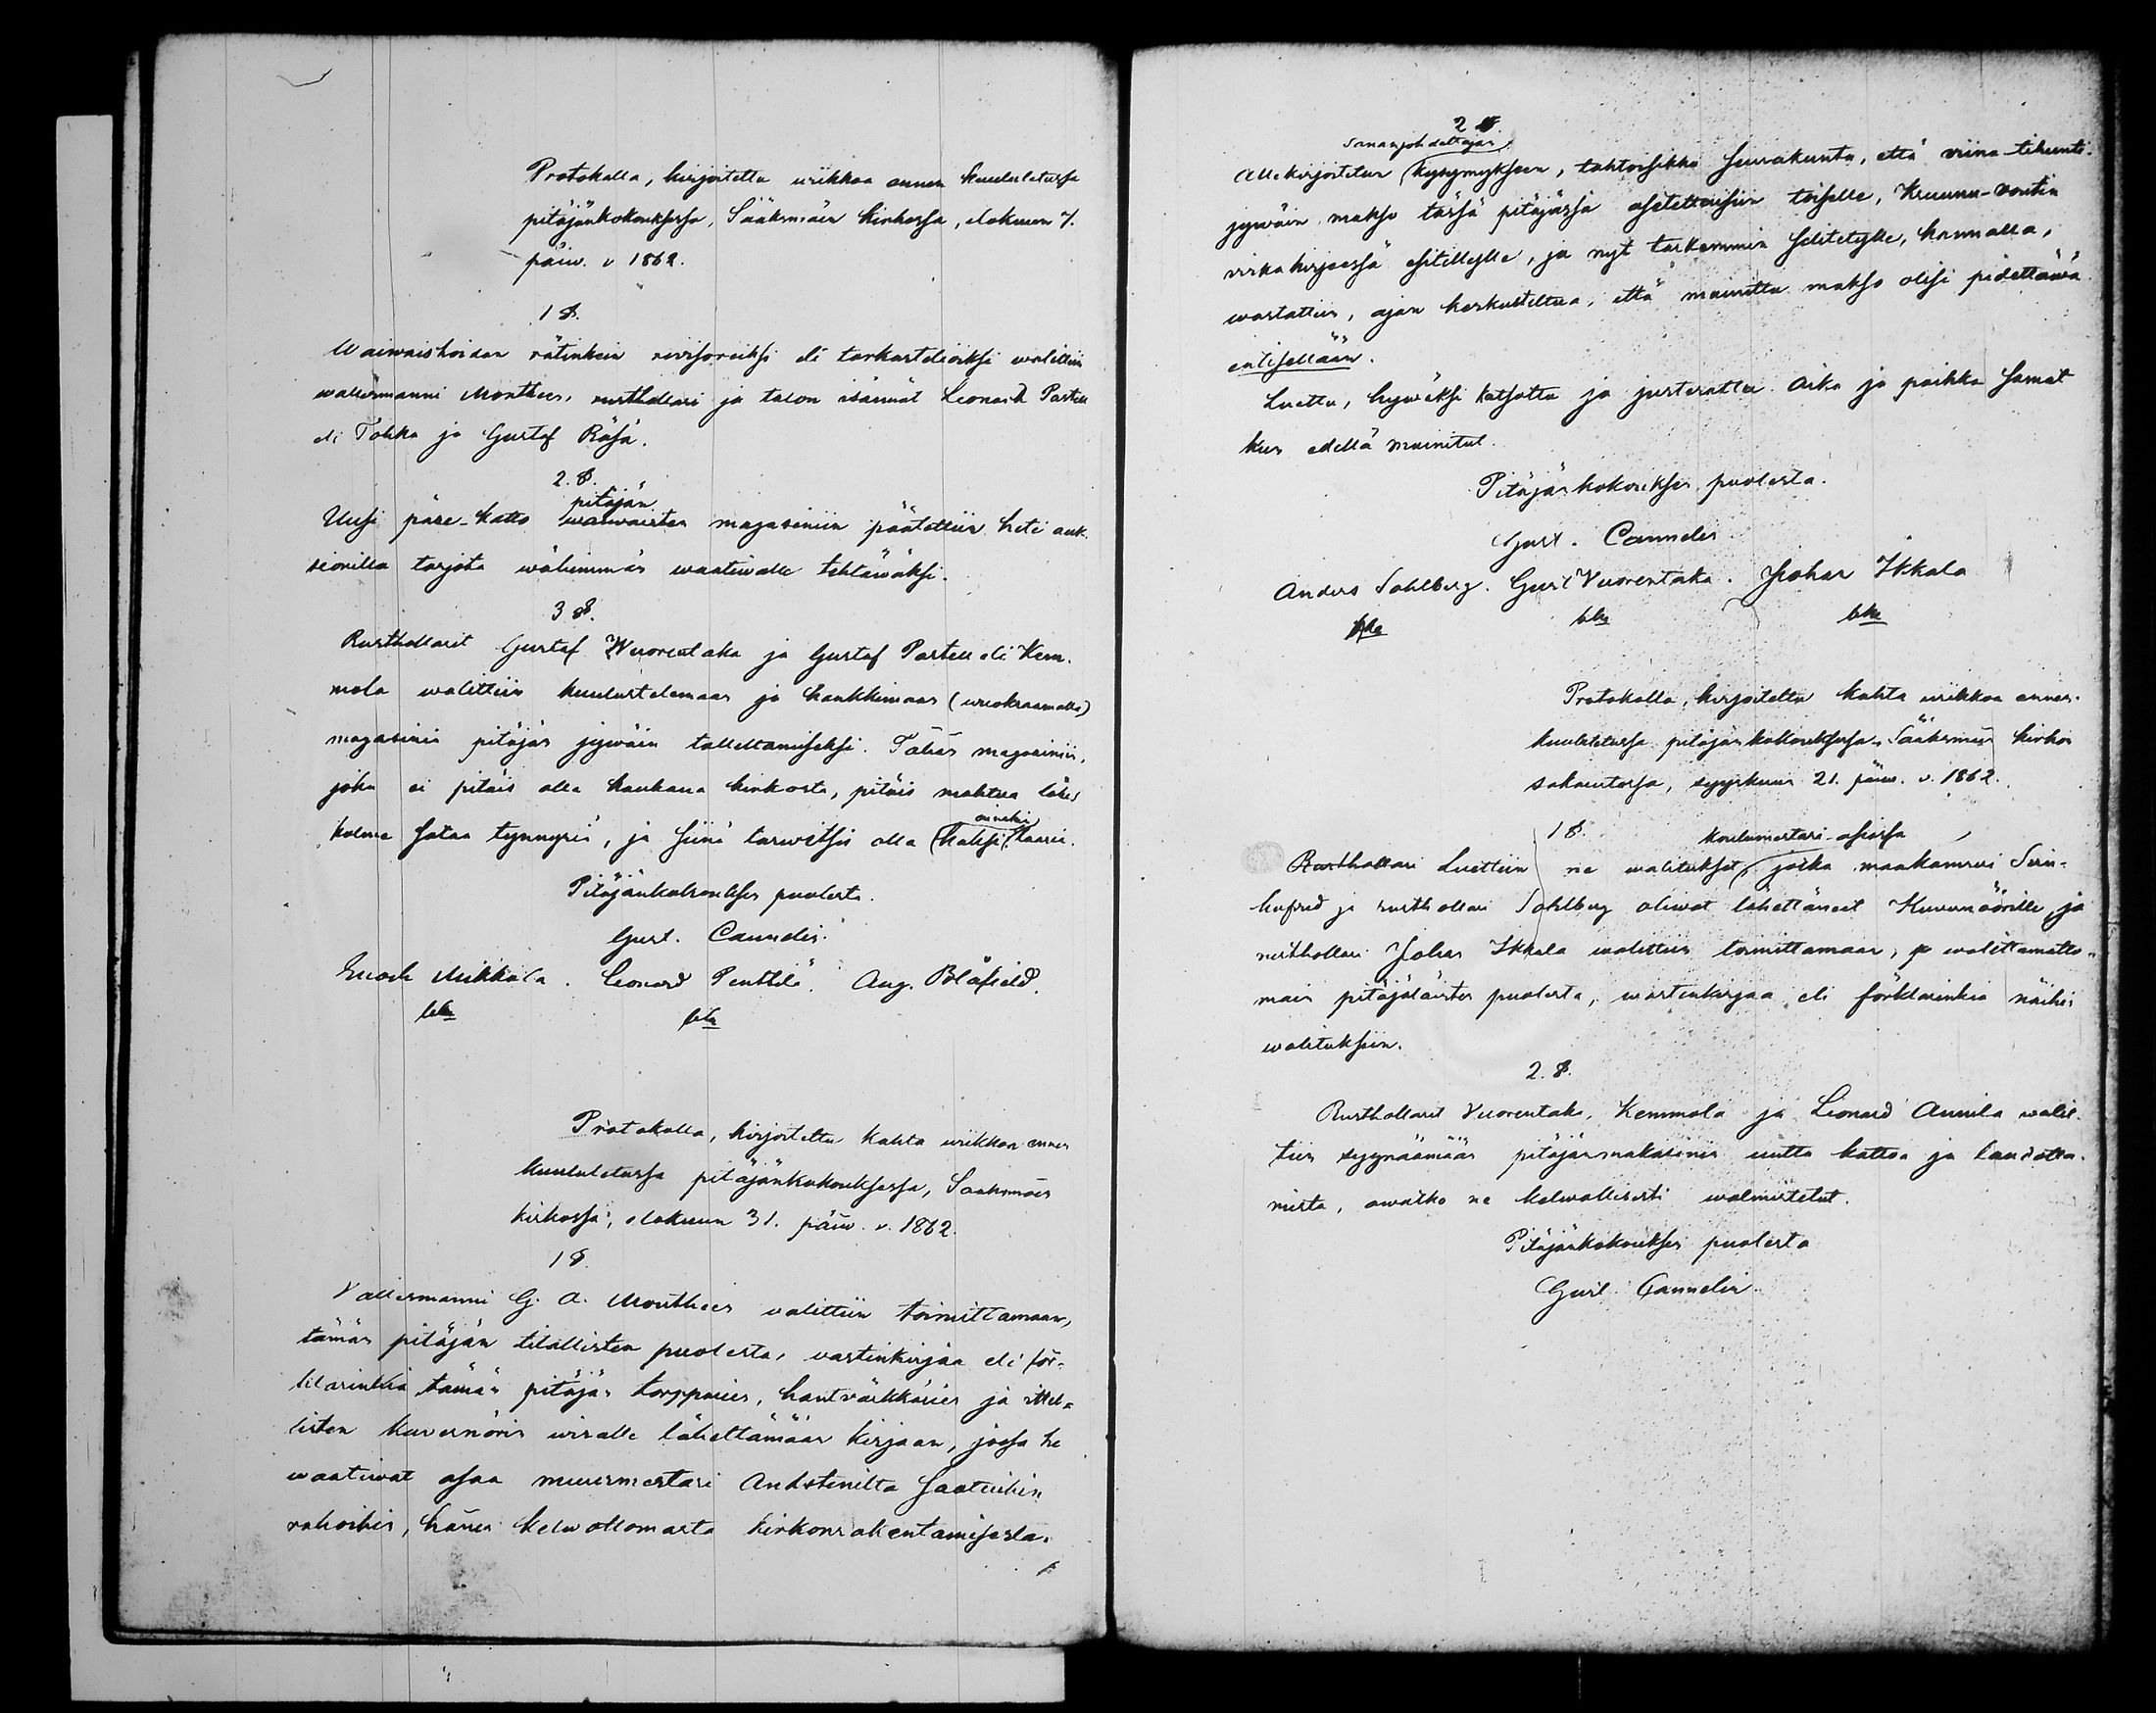 Protokolla, kirjoitettu wiikkoa ennen kuulutetussa
pitäjänkokouksessa, Sääksmäen kirkossa, elokuun 7.
päiw. v 1862.
1 §.
Waiwaishoidon rätinkein revisoreiksi eli tarkastelioiksi walittiin
wallesmanni Monthees, rusthollari ja talon isännät Leonard Partell
eli Tohka ja Gustaf Räsä.
2. §.
pitäjän
Uusi päre-katto waiwaisten magasiniin päätettiin heti auk-
sionilla tarjota wähimmän waatiwalle tehtäwäksi.
3 §.
Rusthollarit Gustaf Wuorentaka ja Gustaf Partell eli Kem-
mola walittiin kuulustelemaan ja hankkimaan (wuokraamalla)
magasinin pitäjän jywäin tallettamiseksi. Tähän magasiniin,
joka ei pitäis olla kaukana kirkosta, pitäis mahtua lähes
kolme sataa tynnyriä, ja siinä tarwitsis olla (kaksi) laaria.
Pitäjänkokouksen puolesta.
Gust. Cannelin.
Enoch Mikkola. Leonard Penttilä. Aug. Blåfield.
Protokolla, kirjoitettu kahta wiikkoa ennen
kuulutetussa pitäjänkokouksessa, Sääksmäen
kirkossa, elokuun 31. päiw. v. 1862.
1 §.
Vallesmanni G. A. Monthees valittiin toimittamaan,
tämän pitäjän tilallisten puolesta, vastinkirjaa eli för-
klarinkia tämän pitäjän torpparien, hantvärkkärien ja itsel-
listen kuvernörin wiralle lähettämään kirjaan, jossa he
waatiwat osaa muurmestari Andsteniltä saatuihin
rahoihin, hänen kelwottomasta kirkonrakentamisesta.
2 §.
Sananjohdattajan
Allekirjoitetun kysymykseen, tahtoisikko seurakunta, että viina-tikunti-
jywäin makso tässä pitäjässä asetettaisiin toiselle, Kruunu-voutin
virkakirjeessä esitellylle, ja nyt tarkemmin selitetylle, kannalla,
wastattiin, ajan keskusteltua, että mainittu makso olisi pidettäwä
entisellään.
Luettu, hywäksi katsottu ja justerattu. Aika ja paikka samat
kun edellä mainitut.
Pitäjänkokouksen puolesta.
Gust. Cannelin
Anders Sohlberg. Gust Vuorentaka. Johan Ikkala
Protokolla, kirjoitettu kahta wiikkoa ennen
kuulutetussa pitäjänkokouksessa Sääksmäen kirkon
sakaristossa, syyskuun 21. päiw. v. 1862.
1 §.
koulumestari-asiassa
Rusthollari Luettiin ne walitukset, jotka maakamreri Sern-
hufvud ja rusthollari Sohlberg oliwat lähettäneet Kuvernöörille, ja
rusthollari Johan Ikkala walittiin toimittamaan, walittamatto-
main pitäjäläisten puolesta, wastinkirjaa eli förklarinkia näihin
walituksiin.
2. §.
Rusthollarit Vuorentaka, Kemmola ja Leonard Annila walit-
tiin syynäämään pitäjänmakasinin uutta kattoa ja laudotta-
mista, owatko ne kelwollisesti walmistetut.
Pitäjänkokouksen puolesta
Gust. Cannelin